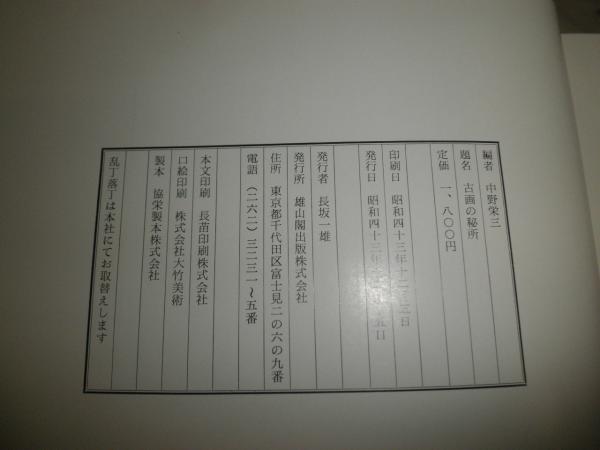 編者　中野栄三
題名　古画の秘所
定価　一、八〇〇円
印刷日　昭和四十三年十二月五日
発行日　昭和四十三年十二月十五日
発行者　長坂一雄
発行所　雄山閣出版株式会社
住所　東京都千代田区富士見二の六の九番
電語　（二六二）三二三一～五番
本文印刷　長苗印刷株式会社
口絵印刷　株式会社大竹美術
製本　協栄製本株式会社
乱丁落丁は本社にてお取替えします